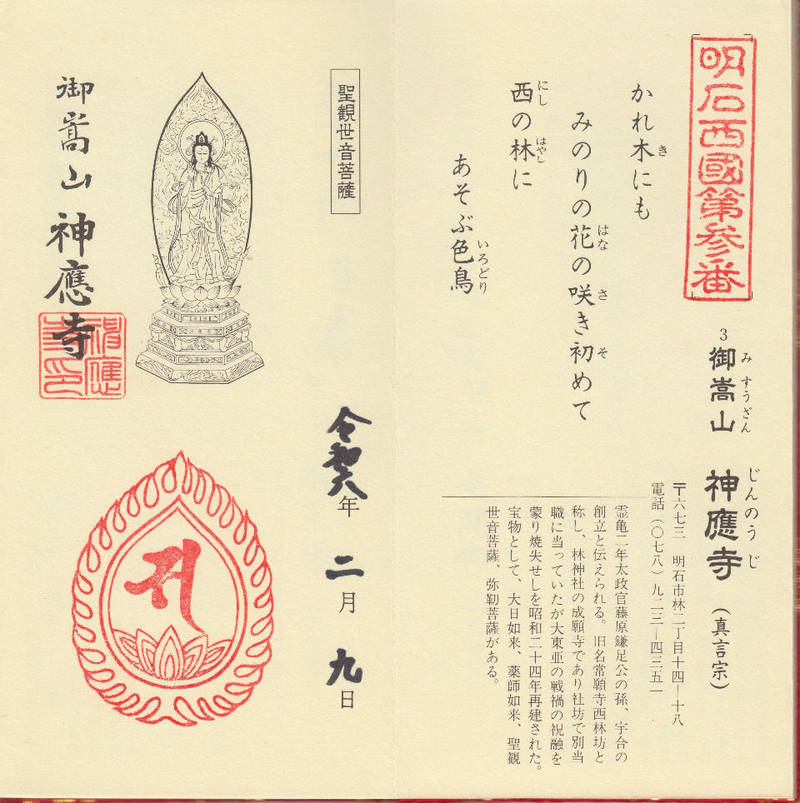 明石西國第参番
3 御嵩山 神應寺 (真言宗)
みすうざん じんのうじ
〒六七三 明石市林二丁目十四ー十八
電話(〇七八)九二三ー四三五一
かれ木にも
き
みのりの花の咲き初めて
はな さ そ
西の林に
にし はやし
あそぶ色鳥
いろどり
霊亀二年太政官藤原鎌足公の孫、宇合の
創立と伝えられる。旧名常願寺西林坊と
称し、林神社の成願寺であり社坊で別当
職に当っていたが大東亜の戦禍の祝融を
蒙り焼失せしを昭和二十四年再建された。
宝物として、大日如来、薬師如来、聖観
世音菩薩、弥勒菩薩がある。
聖観世音菩薩
御嵩山 神應寺
令和六年 二月 九日